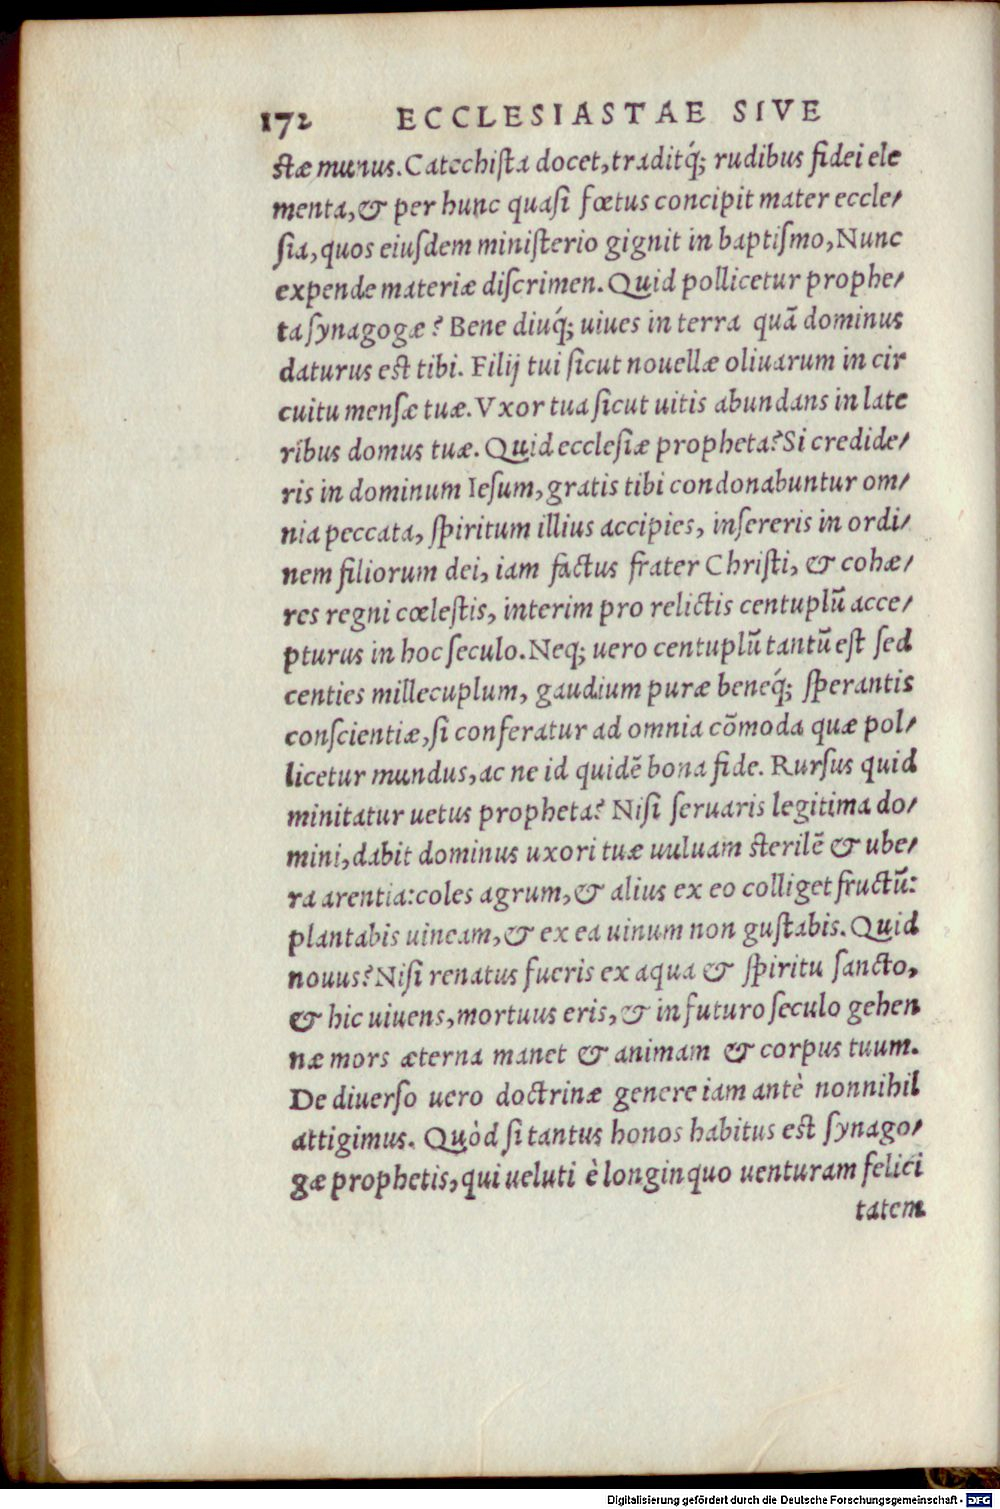 172 ECCLESIASTAE SIVE
stæ munus. Catechista docet, traditq́; rudibus fidei ele
menta, & per hunc quasi fœtus concipit mater eccle/
sia, quos eiusdem ministerio gignit in baptismo, Nunc
expende materiæ discrimen. Quid pollicetur prophe/
ta synagogæ? Bene diuq́; uiues in terra quã dominus
daturus est tibi. Filij tui sicut nouellæ oliuarum in cir
cuitu mensæ tuæ. Vxor tua sicut uitis abundans in late
ribus domus tuæ. Quid ecclesiæ propheta? Si credide/
ris in dominum Iesum, gratis tibi condonabuntur om/
nia peccata, spiritum illius accipies, insereris in ordi/
nem filiorum dei, iam factus frater Christi, & cohæ/
res regni cœlestis, interim pro relictis centuplũ acce/
pturus in hoc seculo. Neq; uero centuplũ tantũ est sed
centies millecuplum, gaudium puræ beneq́; sperantis
conscientiæ, si conferatur ad omnia cõmoda quæ pol/
licetur mundus, ac ne id quidẽ bona fide. Rursus quid
minitatur uetus propheta? Nisi seruaris legitima do/
mini, dabit dominus uxori tuæ uuluam sterilẽ & ube/
ra arentia: coles agrum, & alius ex eo colliget fructũ:
plantabis uineam, & ex ea uinum non gustabis. Quid
nouus? Nisi renatus fueris ex aqua & spiritu sancto,
& hic uiuens, mortuus eris, & in futuro seculo gehen
næ mors æterna manet & animam & corpus tuum.
De diuerso uero doctrinæ genere iam antè nonnihil
attigimus. Quòd si tantus honos habitus est synago/
gæ prophetis, qui ueluti è longinquo uenturam felici
tatem
Digitalisierung gefördert durch die Deutsche Forschungsgemeinschaft - DFG